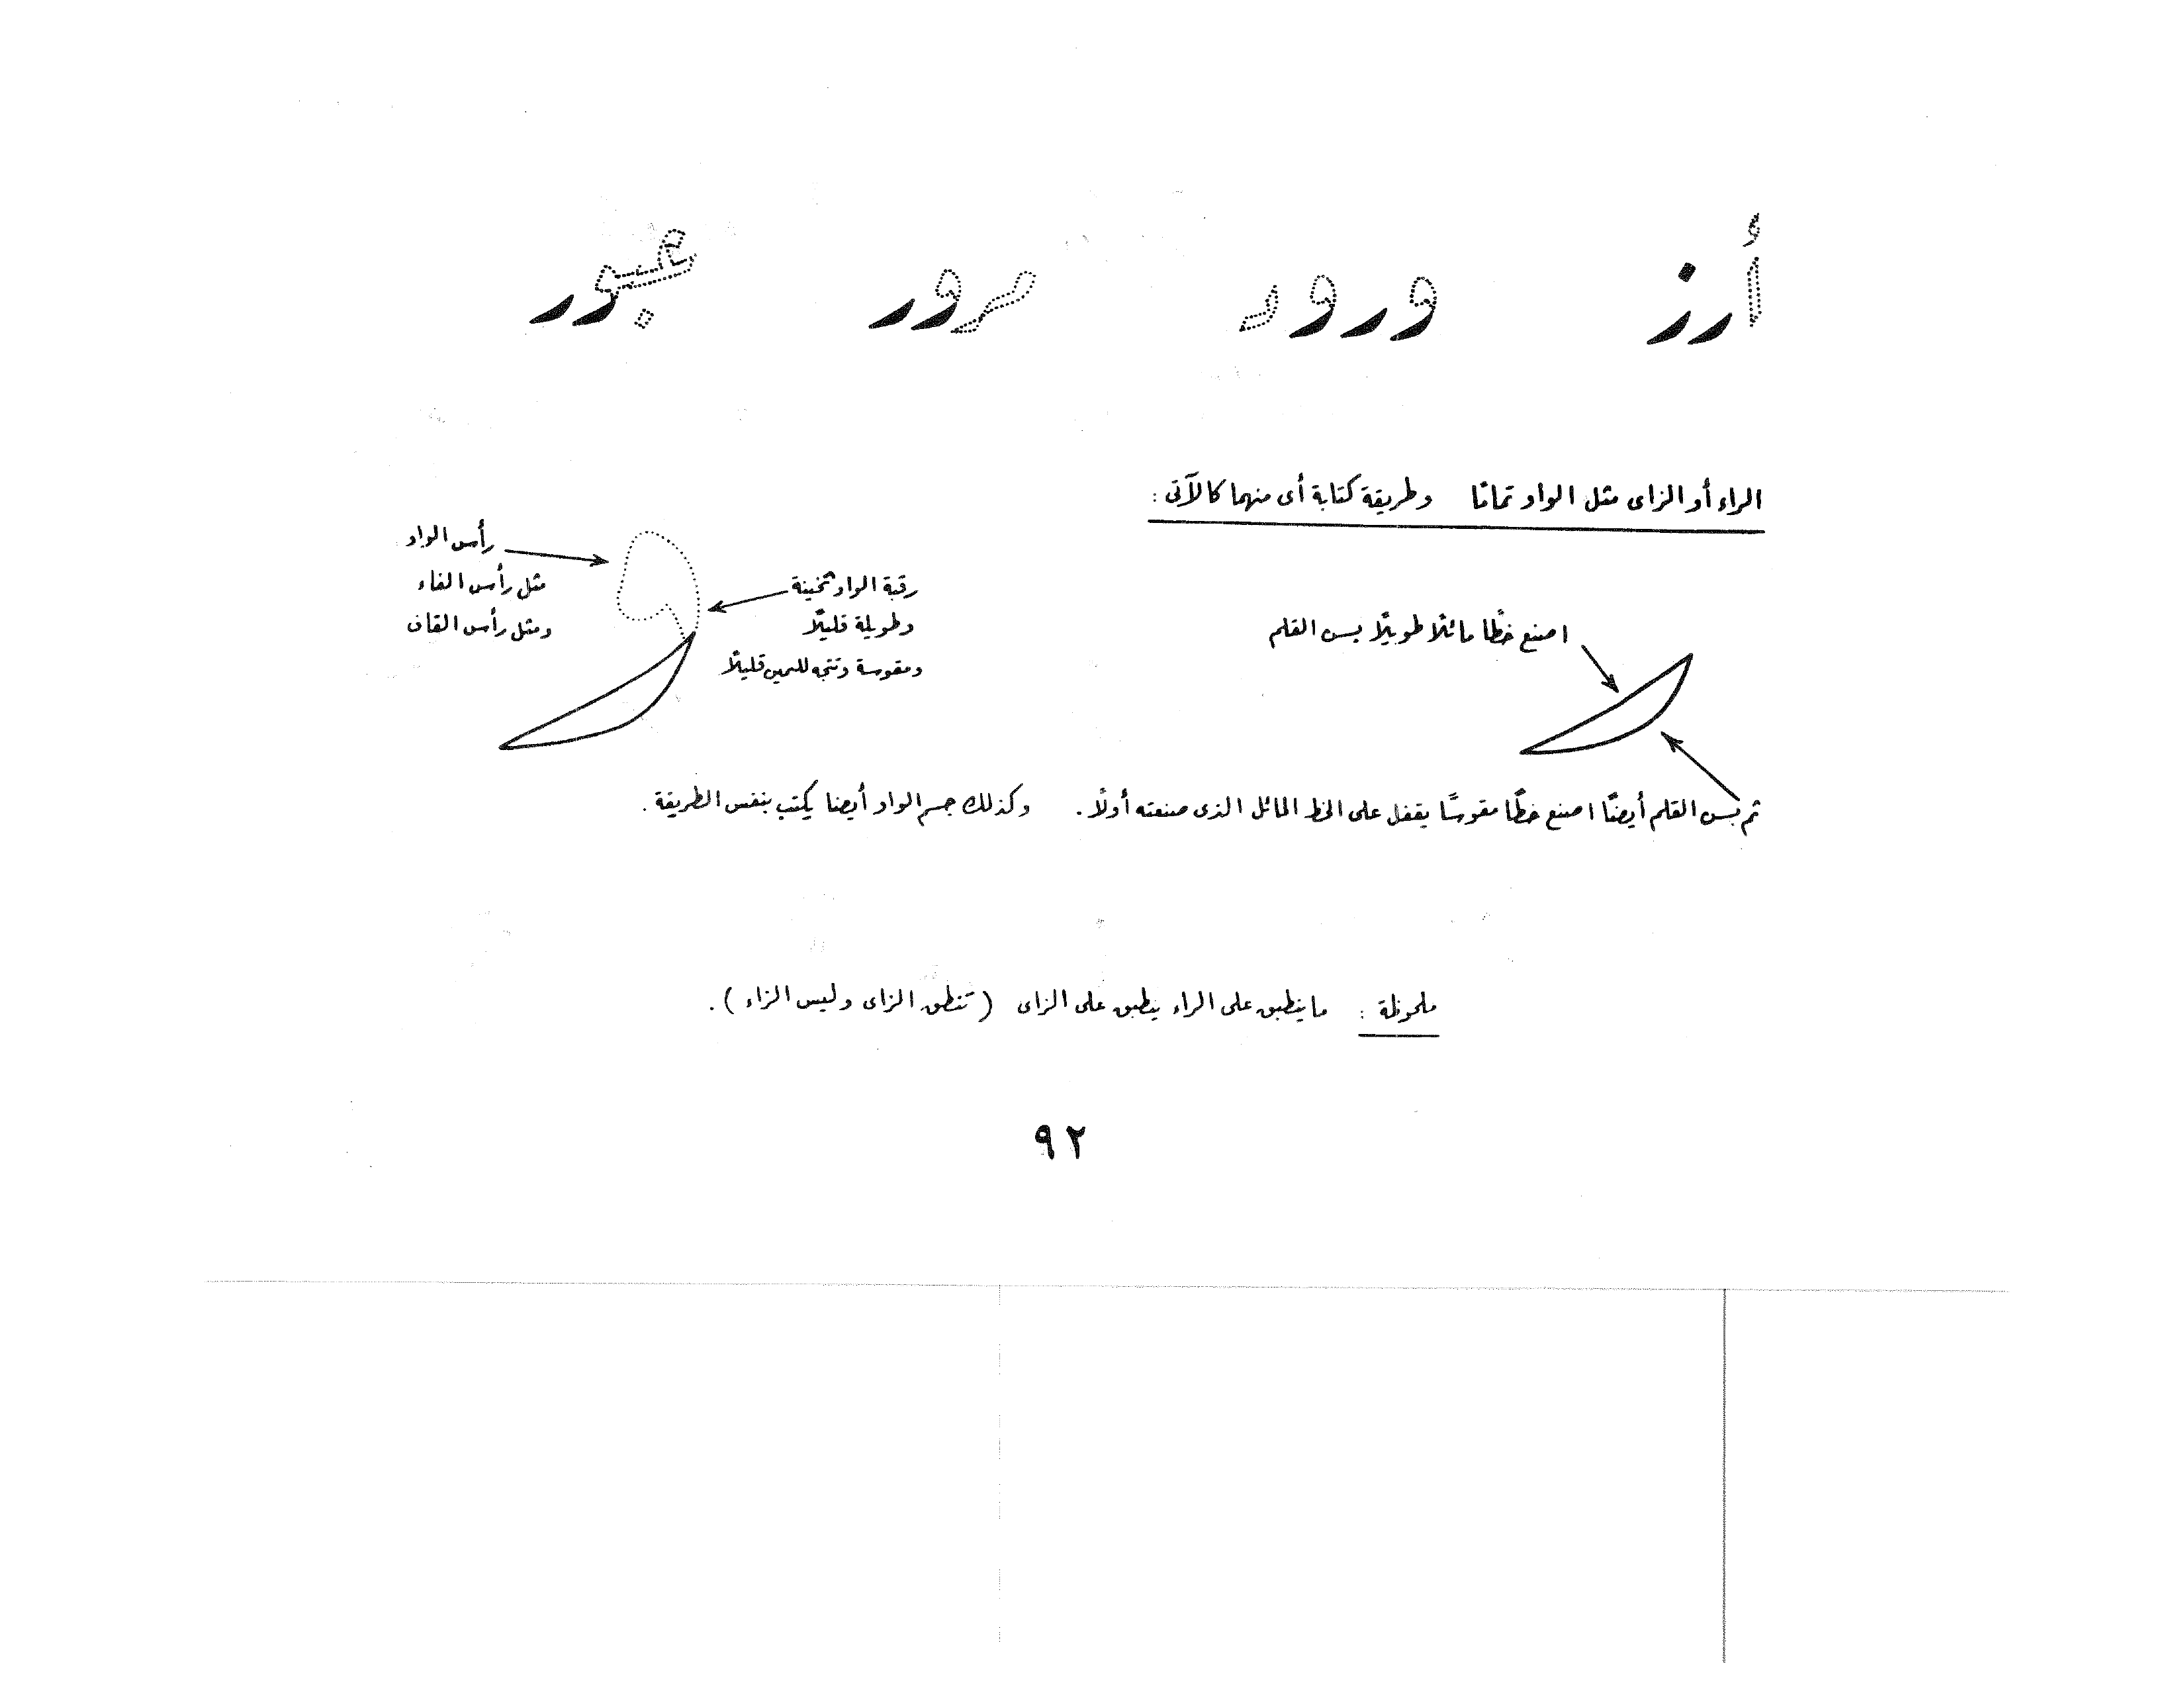 أرز ورود مرور عبور
الراء أو الزاى مثل الواو تمامًا وطريقة كتابة أى منهما كالآتى :
رأس الواو
مثل رأس الفاء
ومثل رأس القاف
رقبة الواو ثخينة
وطويلة قليلًا
ومقوسة وتتجه لليمين قليلًا
اصنع خطًا مائلًا طويلًا بسن القلم
ثم بسن القلم أيضًا اصنع خطًا مقوسًا يقفل على الخط المائل الذى صنعته أولًا . وكذلك جسم الواو أيضا يكتب بنفس الطريقة .
ملحوظة : ما ينطبق على الراء ينطبق على الزاى ( تنطق الزاى وليس الزاء ) .
٩٢